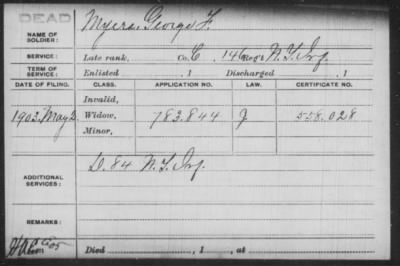 DEAD
NAME OF SOLDIER: Myers, George F.
SERVICE: Late rank, Co. C, 146 Reg't N. Y. Inf.
TERM OF SERVICE: Enlisted , 1 Discharged , 1
DATE OF FILING. CLASS. APPLICATION NO. LAW. CERTIFICATE NO.
Invalid,
1902, May 2. Widow, 783.844 J 558.028
Minor,
ADDITIONAL SERVICES: D. 84 N. Y. Inf.
REMARKS:
Died , 1 , at